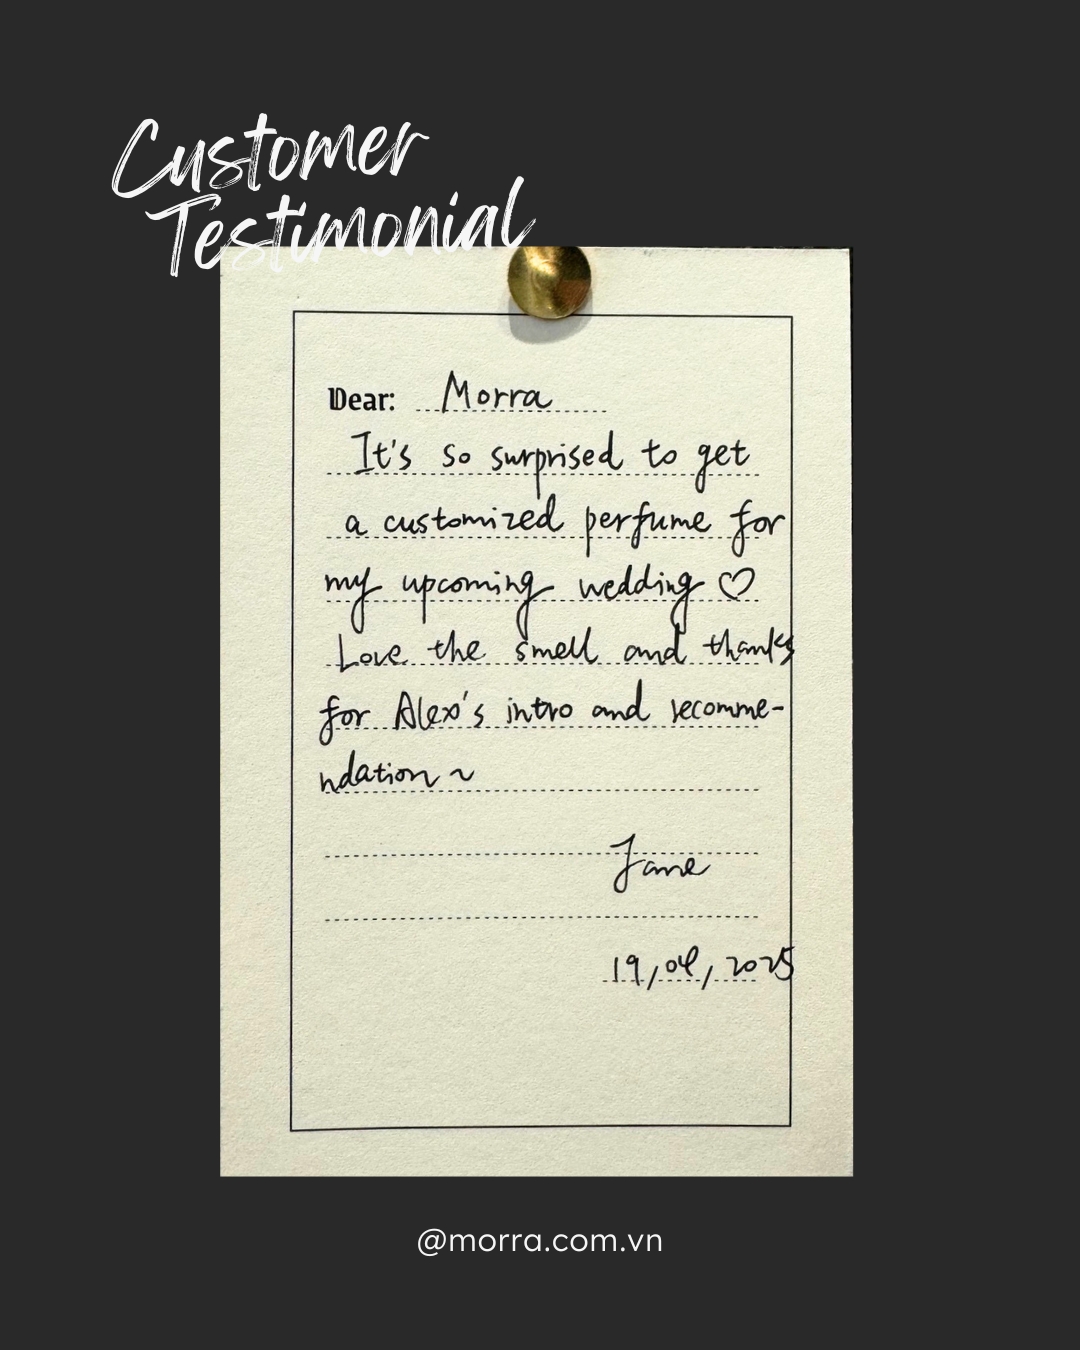 Customer
Testimonial
Dear: Morra
It's so surprised to get
a customized perfume for
my upcoming wedding ♡
Love the smell and thanks
for Alex's intro and recomme-
ndation ~
Jane
19/04/2025
@morra.com.vn